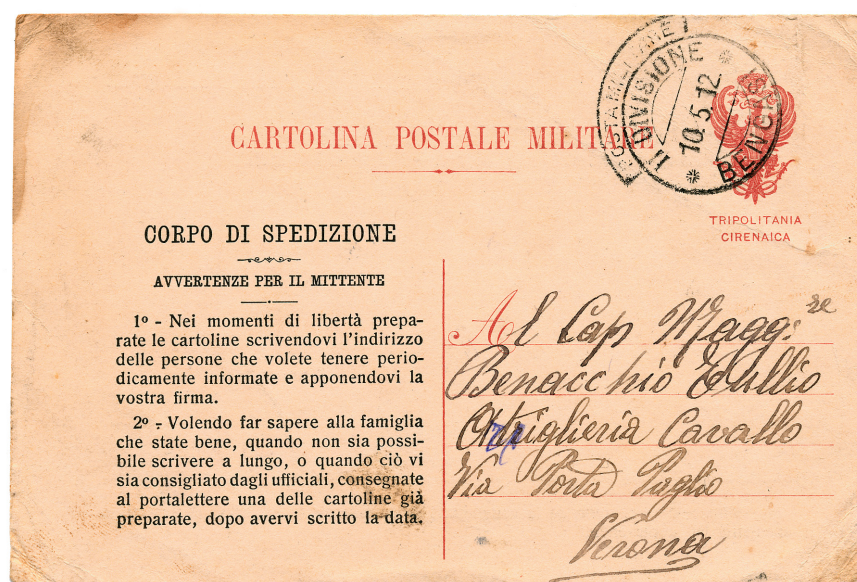 CARTOLINA POSTALE MILITARE
POSTA MILITARE
II DIVISIONE
10.5.12
BENG
TRIPOLITANIA
CIRENAICA
CORPO DI SPEDIZIONE
AVVERTENZE PER IL MITTENTE
1º - Nei momenti di libertà prepa-
rate le cartoline scrivendovi l'indirizzo
delle persone che volete tenere perio-
dicamente informate e apponendovi la
vostra firma.
2º - Volendo far sapere alla famiglia
che state bene, quando non sia possi-
bile scrivere a lungo, o quando ciò vi
sia consigliato dagli ufficiali, consegnate
al portalettere una delle cartoline già
preparate, dopo avervi scritto la data.
Al Cap Magg:re
Benacchio Tullio
Artiglieria Cavallo
Via Porta Paglio
Verona